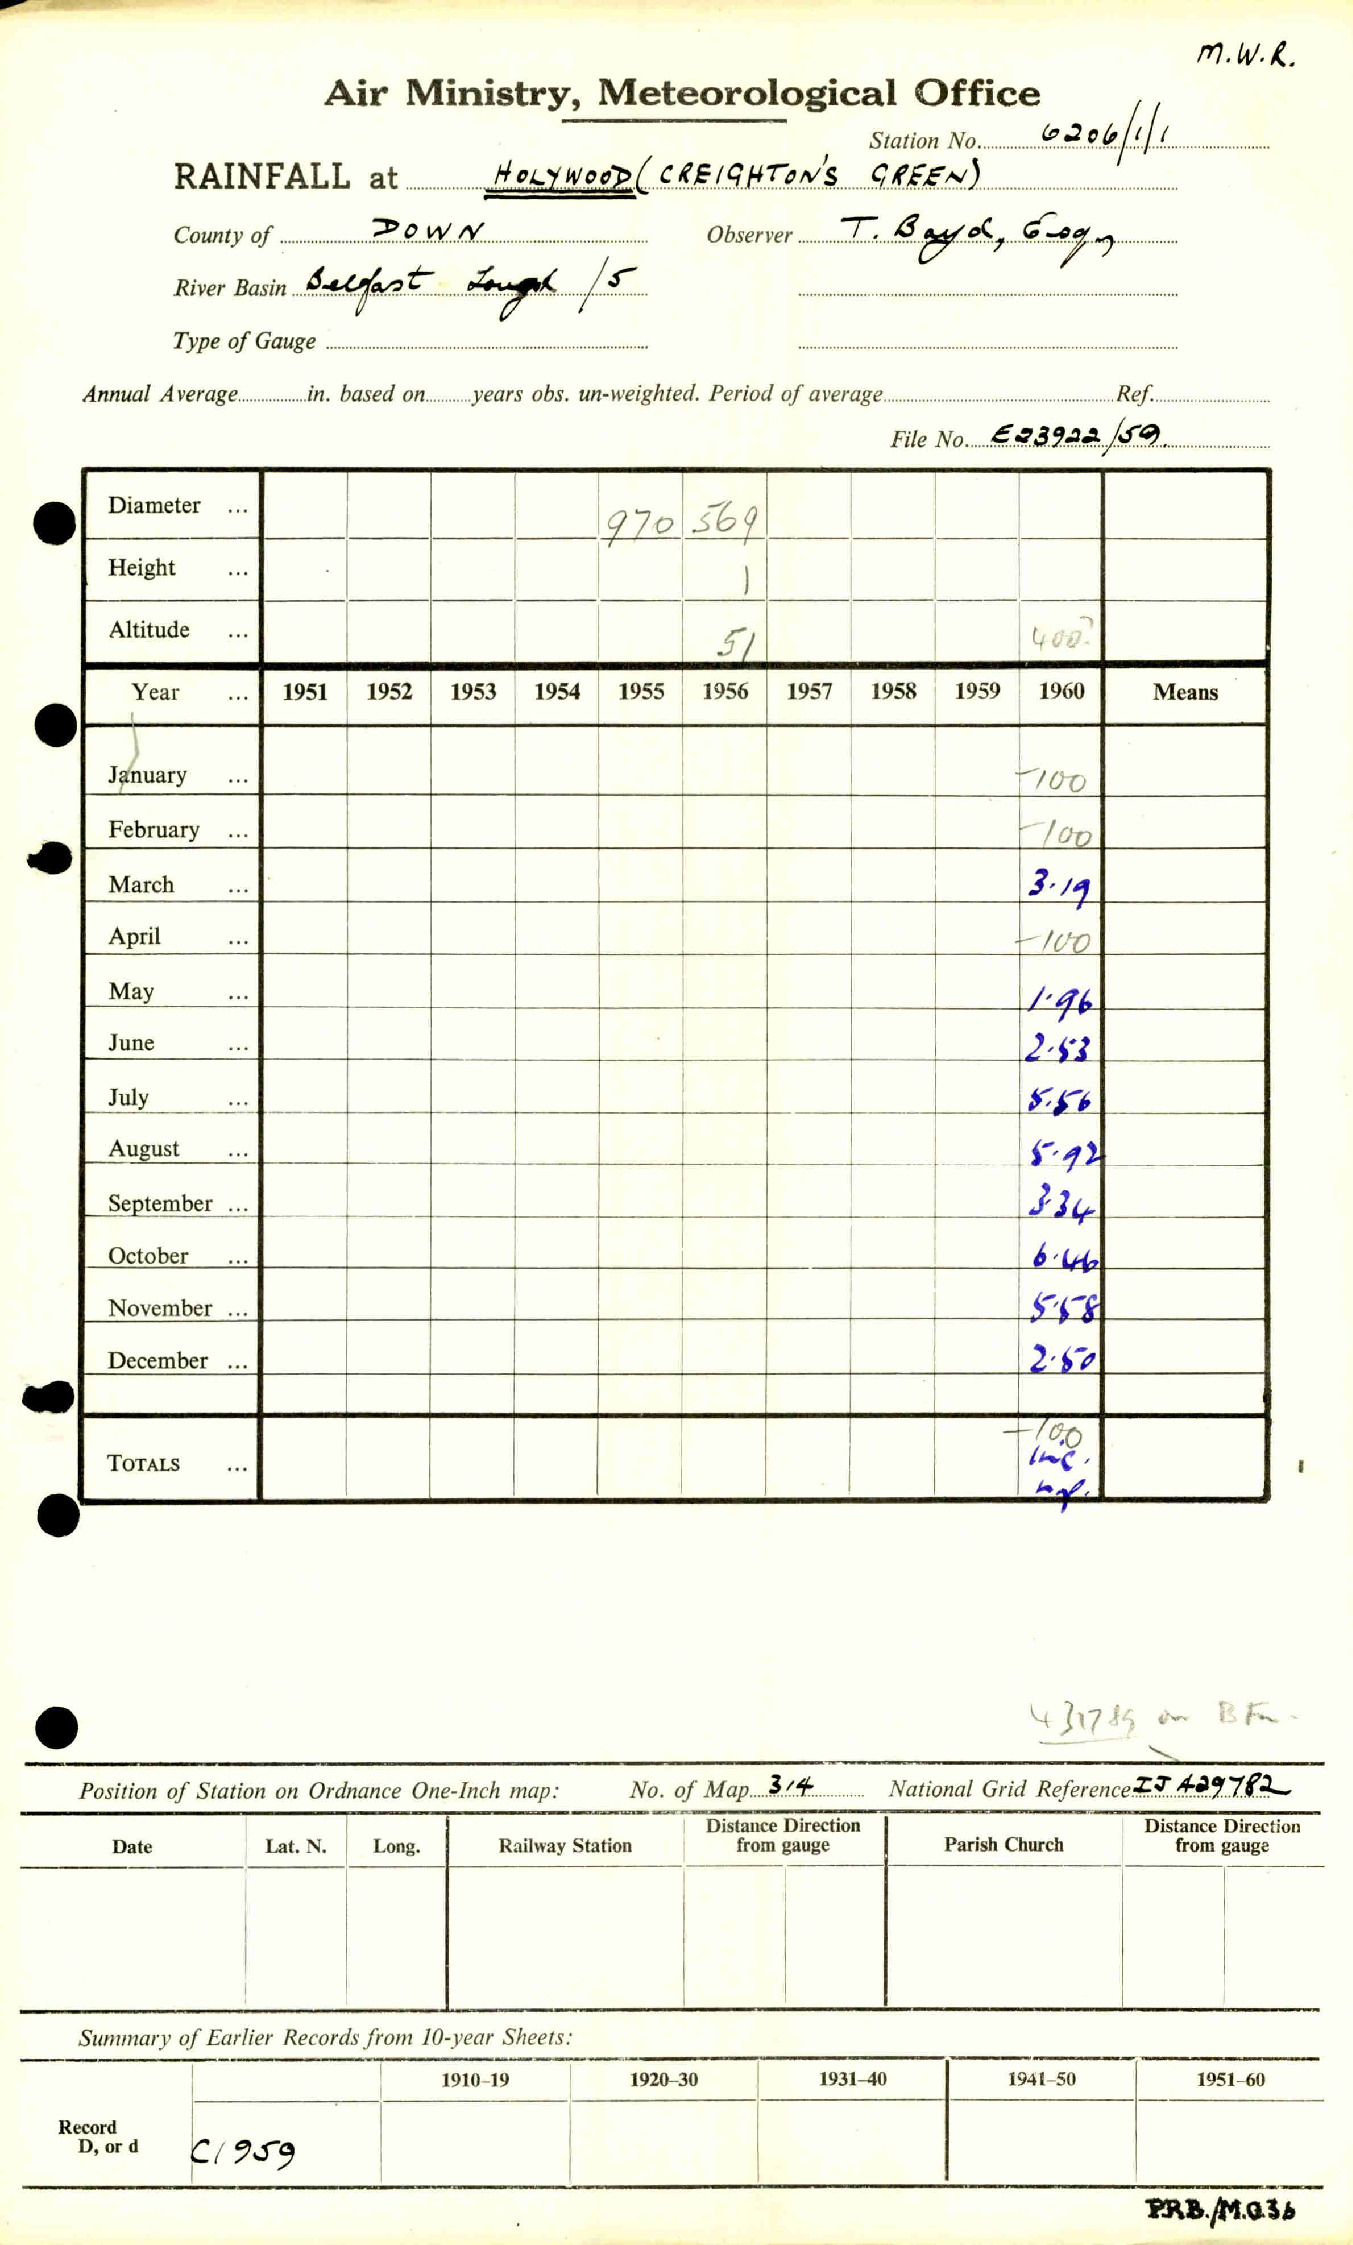 M.W.R.
Air Ministry, Meteorological Office
Station No. 6206/1/1
RAINFALL at HOLYWOOD (CREIGHTON'S GREEN)
County of DOWN Observer T. Boyd, Esq.,
River Basin Belfast Lough /5
Type of Gauge
Annual Average in. based on years obs. un-weighted. Period of average Ref.
File No. E23922/59.
Diameter ... 970 569
Height ... 1
Altitude ... 51 400?
Year ... 1951 1952 1953 1954 1955 1956 1957 1958 1959 1960 Means
January ... -100
February ... -100
March ... 3.19
April ... -100
May ... 1.96
June ... 2.53
July ... 5.56
August ... 5.92
September ... 3.34
October ... 6.46
November ... 5.58
December ... 2.50
-100
TOTALS ... Inc.
431789 on
Position of Station on Ordnance One-Inch map: No. of Map 314 National Grid Reference IJ 429782
Date Lat. N. Long. Railway Station Distance Direction from gauge Parish Church Distance Direction from gauge
Summary of Earlier Records from 10-year Sheets:
1910–19 1920–30 1931–40 1941–50 1951–60
Record
D, or d C1959
P.R.B./M.O.36